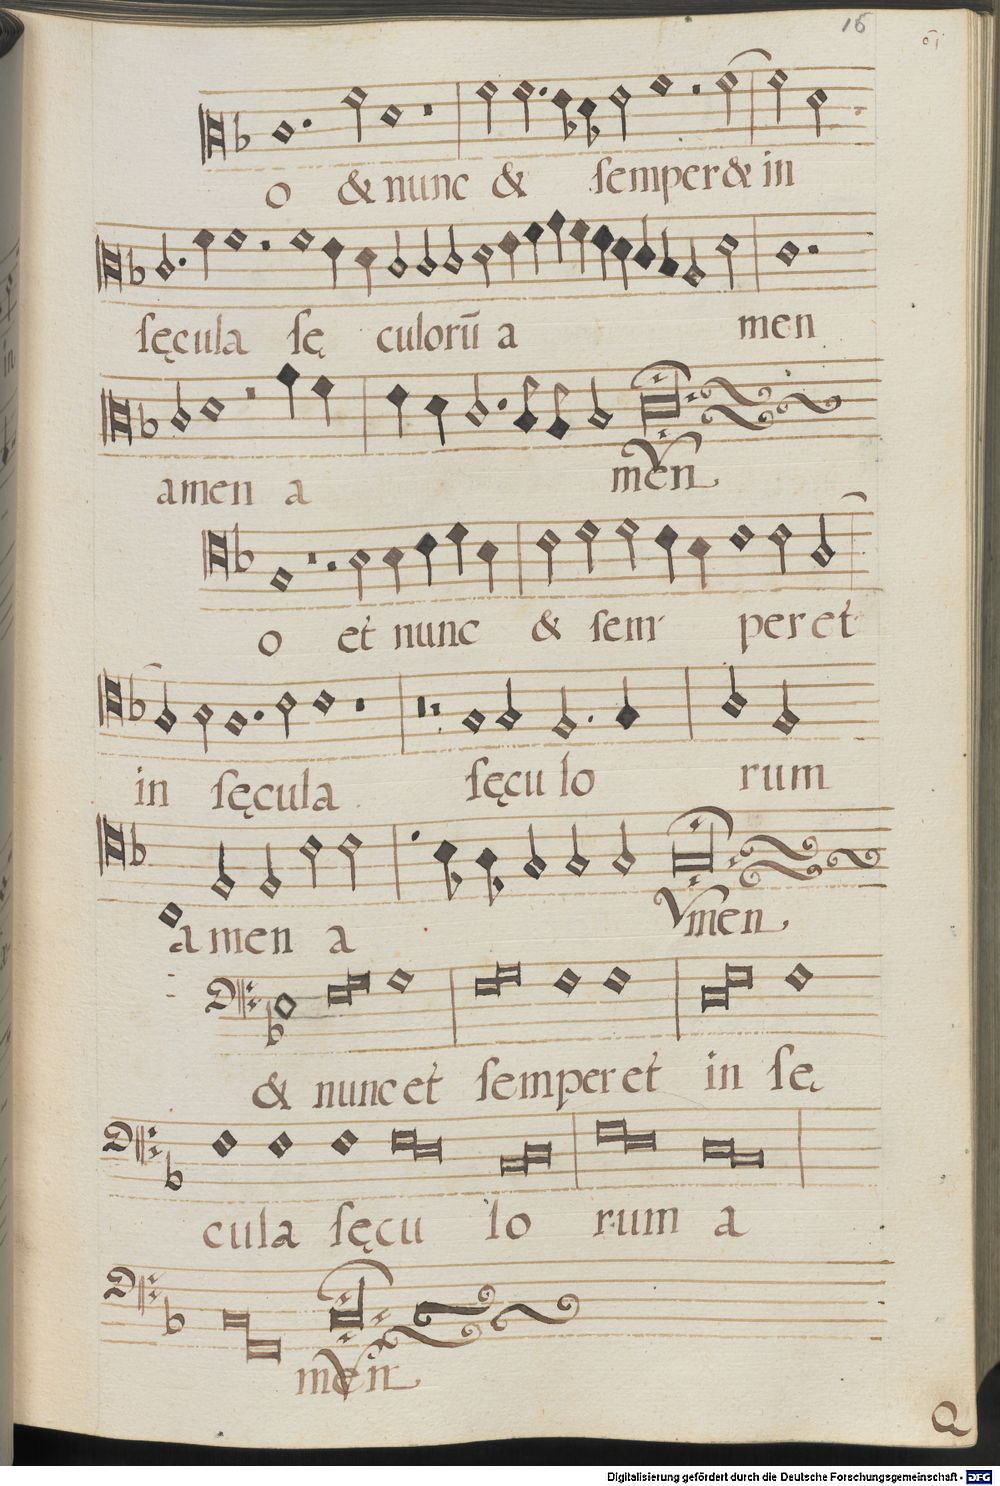 16
o & nunc & ſemper & in
ſęcula ſę culorū a men
amen a men
o et nunc & ſem per et
in ſęcula ſęcu lo rum
amen a men
& nunc et ſemper et in ſę
cula ſęcu lo rum a
men
Digitalisierung gefördert durch die Deutsche Forschungsgemeinschaft - DFG